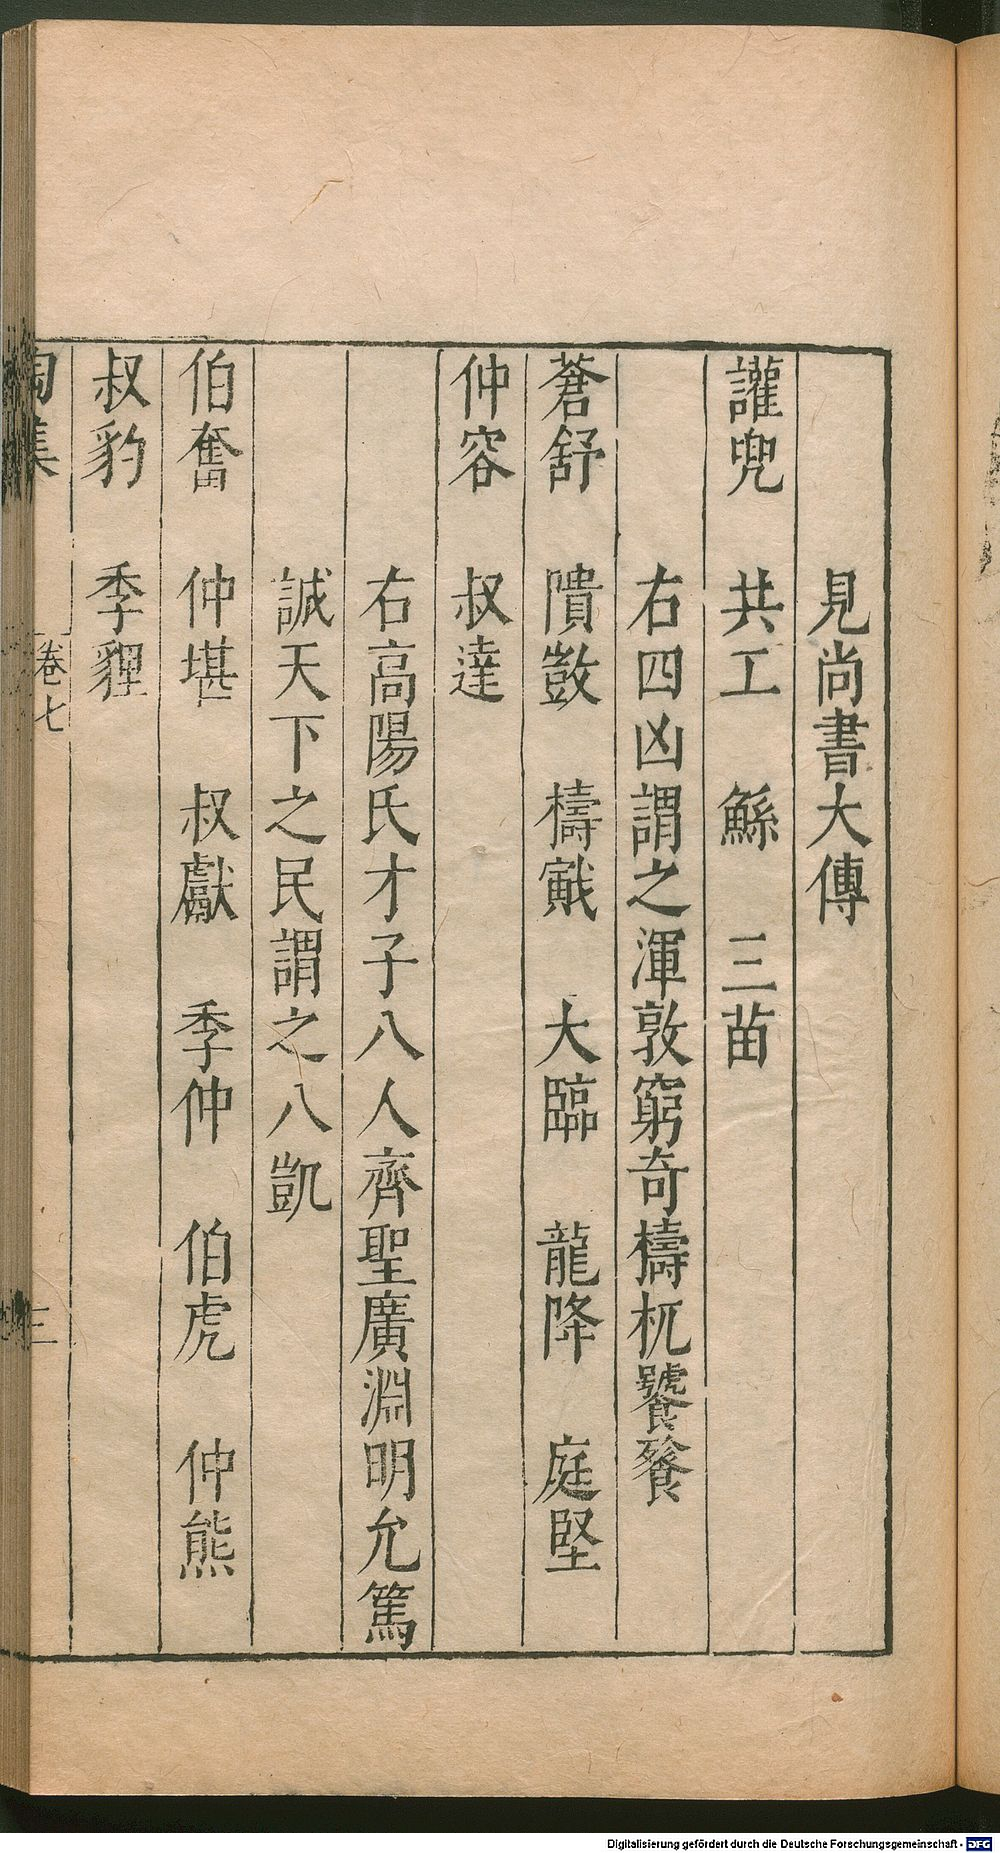 見尚書大傳
讙兜　共工　鯀　三苗
右四凶謂之渾敦窮奇檮杌饕餮
蒼舒　隤敳　檮戭　大臨　龍降　庭堅
仲容　叔達
右高陽氏才子八人齊聖廣淵明允篤
誠天下之民謂之八凱
伯奮　仲堪　叔獻　季仲　伯虎　仲熊
叔豹　季貍
陶集　卷七　三
Digitalisierung gefördert durch die Deutsche Forschungsgemeinschaft - DFG